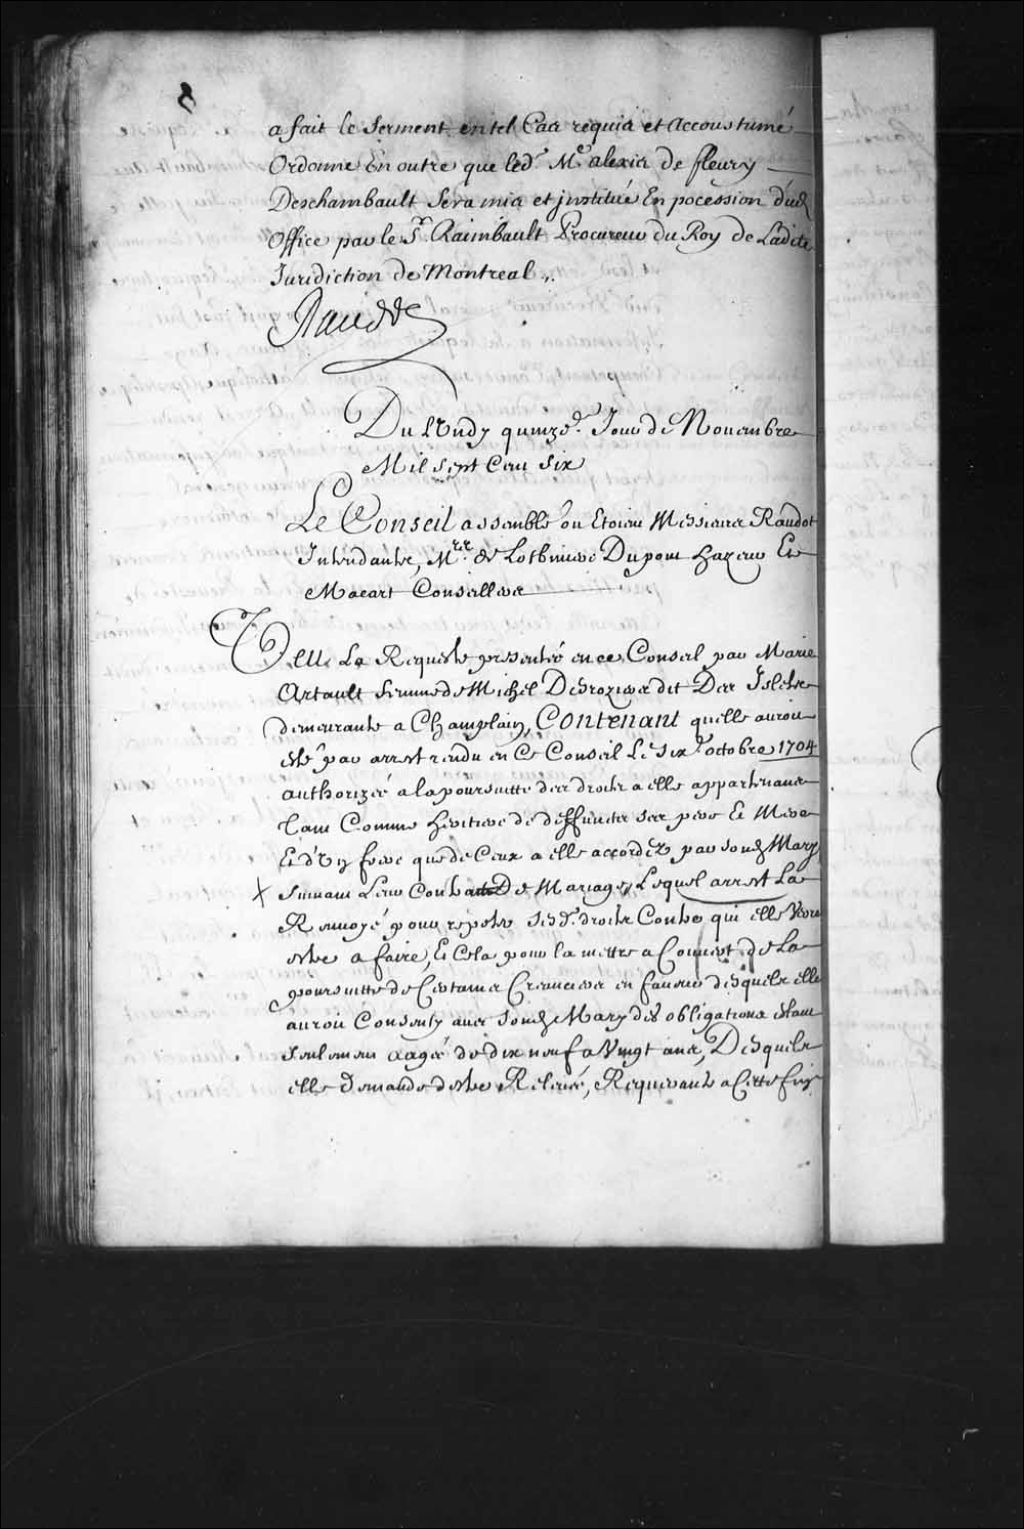 a fait le serment en tel Cas requis et accoustumé
Ordonne En outre que led. Me alexis de fleury
Deschambault sera mis et jnstitué En pocession dud
Office par le Sr. Raimbault Procureur du Roy de Ladite
Juridiction de Montreal ,.
Raudot
Du Lundy quinze. Jour de Nouembre
Mil sept Cens six
Le Conseil assemblé ou Etoient Messieurs Raudot
Intendants, Mrs. de Lotbiniere Dupont hazeur Et
Macart Conseillers
Veu La Requeste presentée en ce Conseil par Marie
Artault femme de Michel Desroziers dit Des Islets
demeurante a Champlain, Contenant quelle auroit
esté par arrest rendu en Ce Conseil Le six octobre 1704
authorizée a la poursuitte des droits a elle appartenans
tant Comme heritiere de deffuncts ses pere Et Mere
Et d'Vn frere que de Ceux a elle accordez par sond Mary
x suiuant Leur Contract De Mariage, Lequel arrest La
Renuoyé pour repeter sesd. droits Contre qui elle Verra
estre a faire, Et Cela pour la mettre a Couuert de La
poursuitte de Certains Creanciers en faueur desquels elle
auroit Consenty auec sond Mary des obligations estant
seulement aagée de dix neuf a Vingt ans, Desquels
elle Demande d'estre Releuée, Requerante a Cette fin